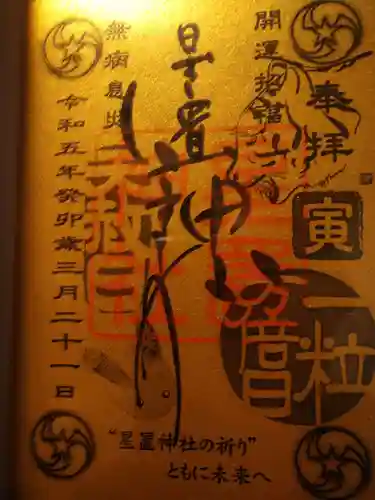 開運招福
奉拝
星置神社
無病息災
令和五年癸卯歳三月二十一日
寅
一粒
万倍日
"星置神社の祈り"
ともに未来へ